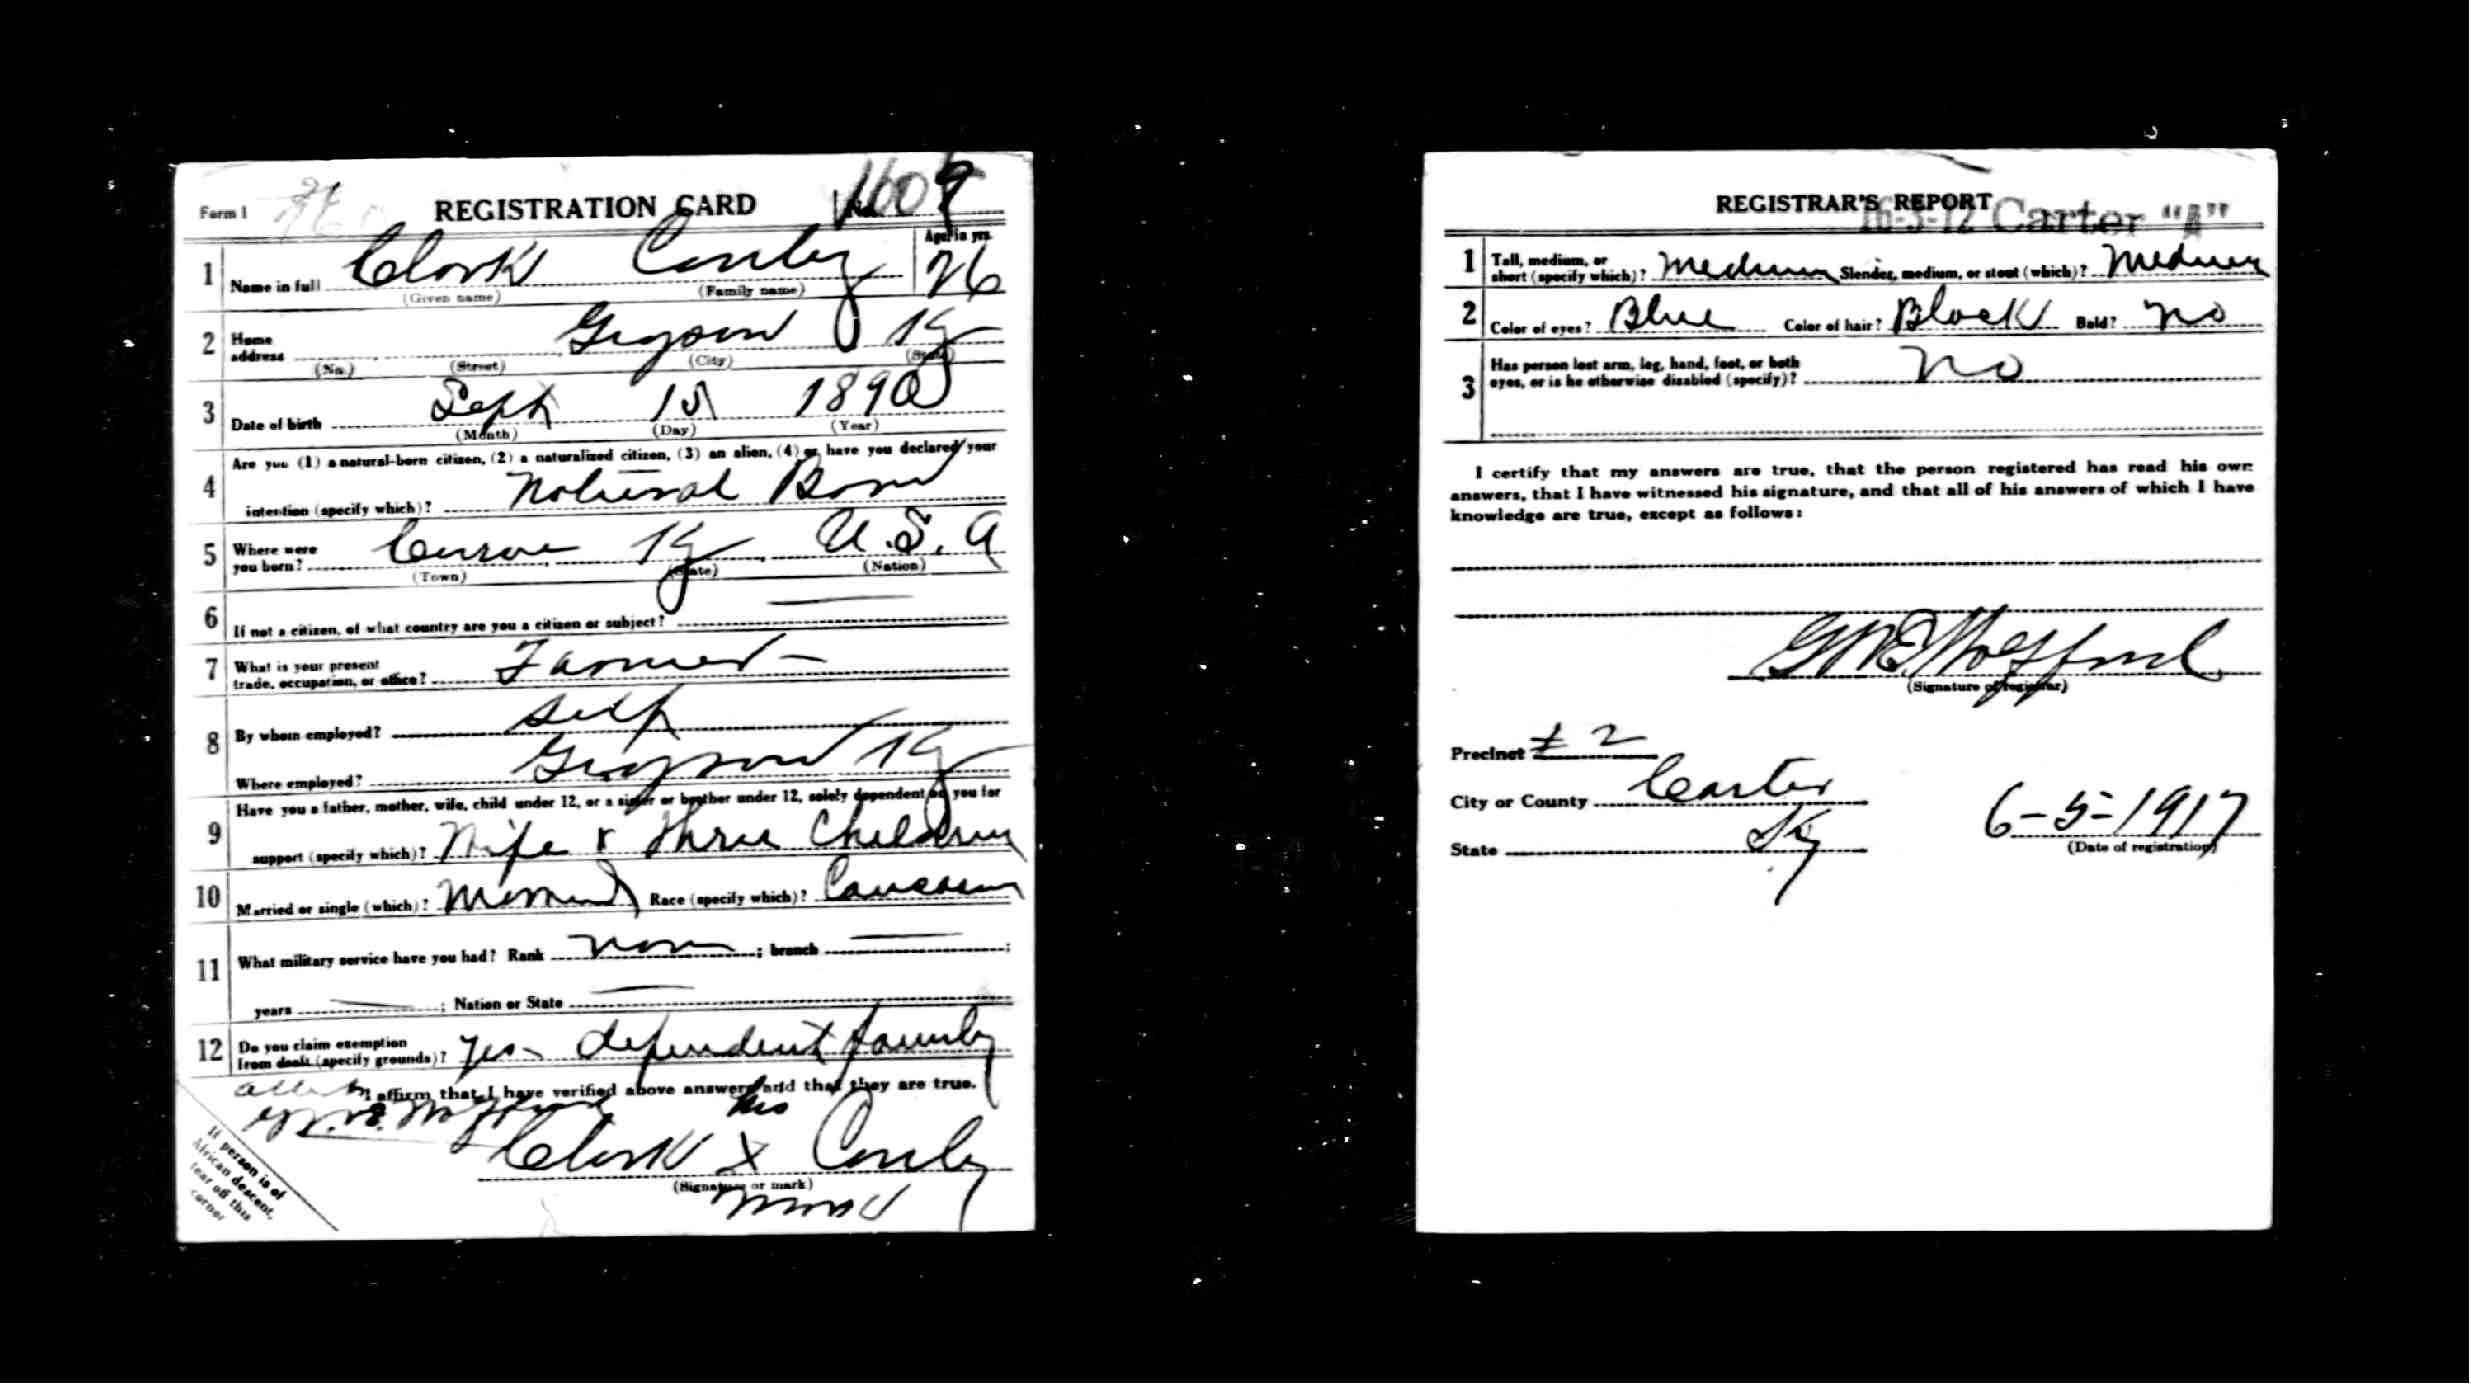 Form 1
REGISTRATION CARD No. 1609
1 Name in full Clark Conley Age, in yrs. 26
(Given name) (Family name)
2 Home address Grayson Ky
(No.) (Street) (City) (State)
3 Date of birth Sept 15 1890
(Month) (Day) (Year)
4 Are you (1) a natural-born citizen, (2) a naturalized citizen, (3) an alien, (4) or have you declared your
intention (specify which)? Natural Born
5 Where were you born? Ky U.S.A
(Town) (State) (Nation)
6 If not a citizen, of what country are you a citizen or subject?
7 What is your present trade, occupation, or office? Farmer
8 By whom employed? Self
Where employed? Grayson Ky
9 Have you a father, mother, wife, child under 12, or a sister or brother under 12, solely dependent on you for
support (specify which)? Wife & three Children
10 Married or single (which)? Married Race (specify which)? Caucasian
11 What military service have you had? Rank none ; branch ;
years ; Nation or State
12 Do you claim exemption from draft (specify grounds)? Yes - dependent family
I affirm that I have verified above answers and that they are true.
his
Clark X Conley
(Signature or mark)
mark
If person is of African descent, tear off this corner
REGISTRAR'S REPORT
16-3-12 Carter "A"
1 Tall, medium, or short (specify which)? Medium Slender, medium, or stout (which)? Medium
2 Color of eyes? Blue Color of hair? Black Bald? No
3 Has person lost arm, leg, hand, foot, or both eyes, or is he otherwise disabled (specify)? No
I certify that my answers are true, that the person registered has read his own
answers, that I have witnessed his signature, and that all of his answers of which I have
knowledge are true, except as follows:
(Signature of registrar)
Precinct # 2
City or County Carter
State Ky
6-5-1917
(Date of registration)